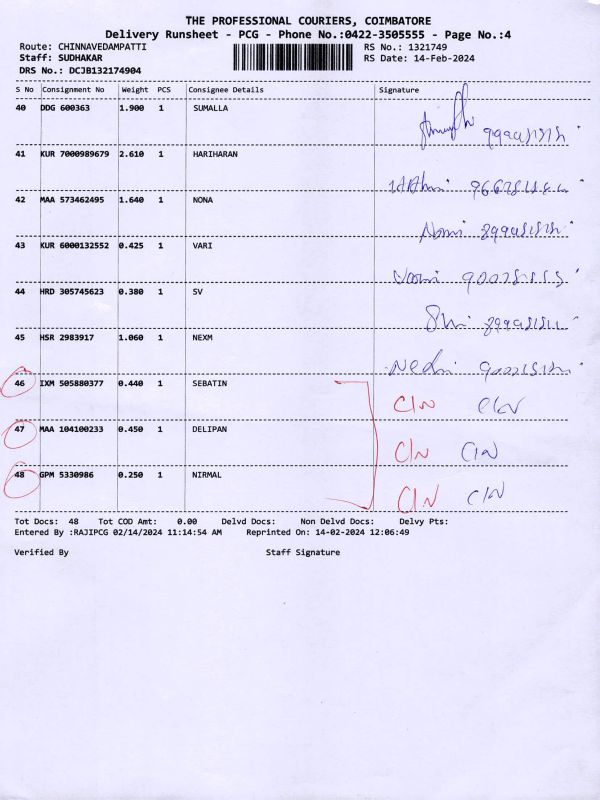 THE PROFESSIONAL COURIERS, COIMBATORE
Delivery Runsheet - PCG - Phone No.:0422-3505555 - Page No.:4
Route: CHINNAVEDAMPATTI RS No.: 1321749
Staff: SUDHAKAR RS Date: 14-Feb-2024
DRS No.: DCJB132174904
S No Consignment No Weight PCS Consignee Details Signature
40 DDG 600363 1.900 1 SUMALLA
41 KUR 7000989679 2.610 1 HARIHARAN
42 MAA 573462495 1.640 1 NONA
43 KUR 6000132552 0.425 1 VARI
44 HRD 305745623 0.380 1 SV
45 HSR 2983917 1.060 1 NEXM
46 IXM 505880377 0.440 1 SEBATIN C/N C/N
47 MAA 104100233 0.450 1 DELIPAN C/N C/N
48 GPM 5330986 0.250 1 NIRMAL C/N C/N
Tot Docs: 48 Tot COD Amt: 0.00 Delvd Docs: Non Delvd Docs: Delvy Pts:
Entered By :RAJIPCG 02/14/2024 11:14:54 AM Reprinted On: 14-02-2024 12:06:49
Verified By Staff Signature